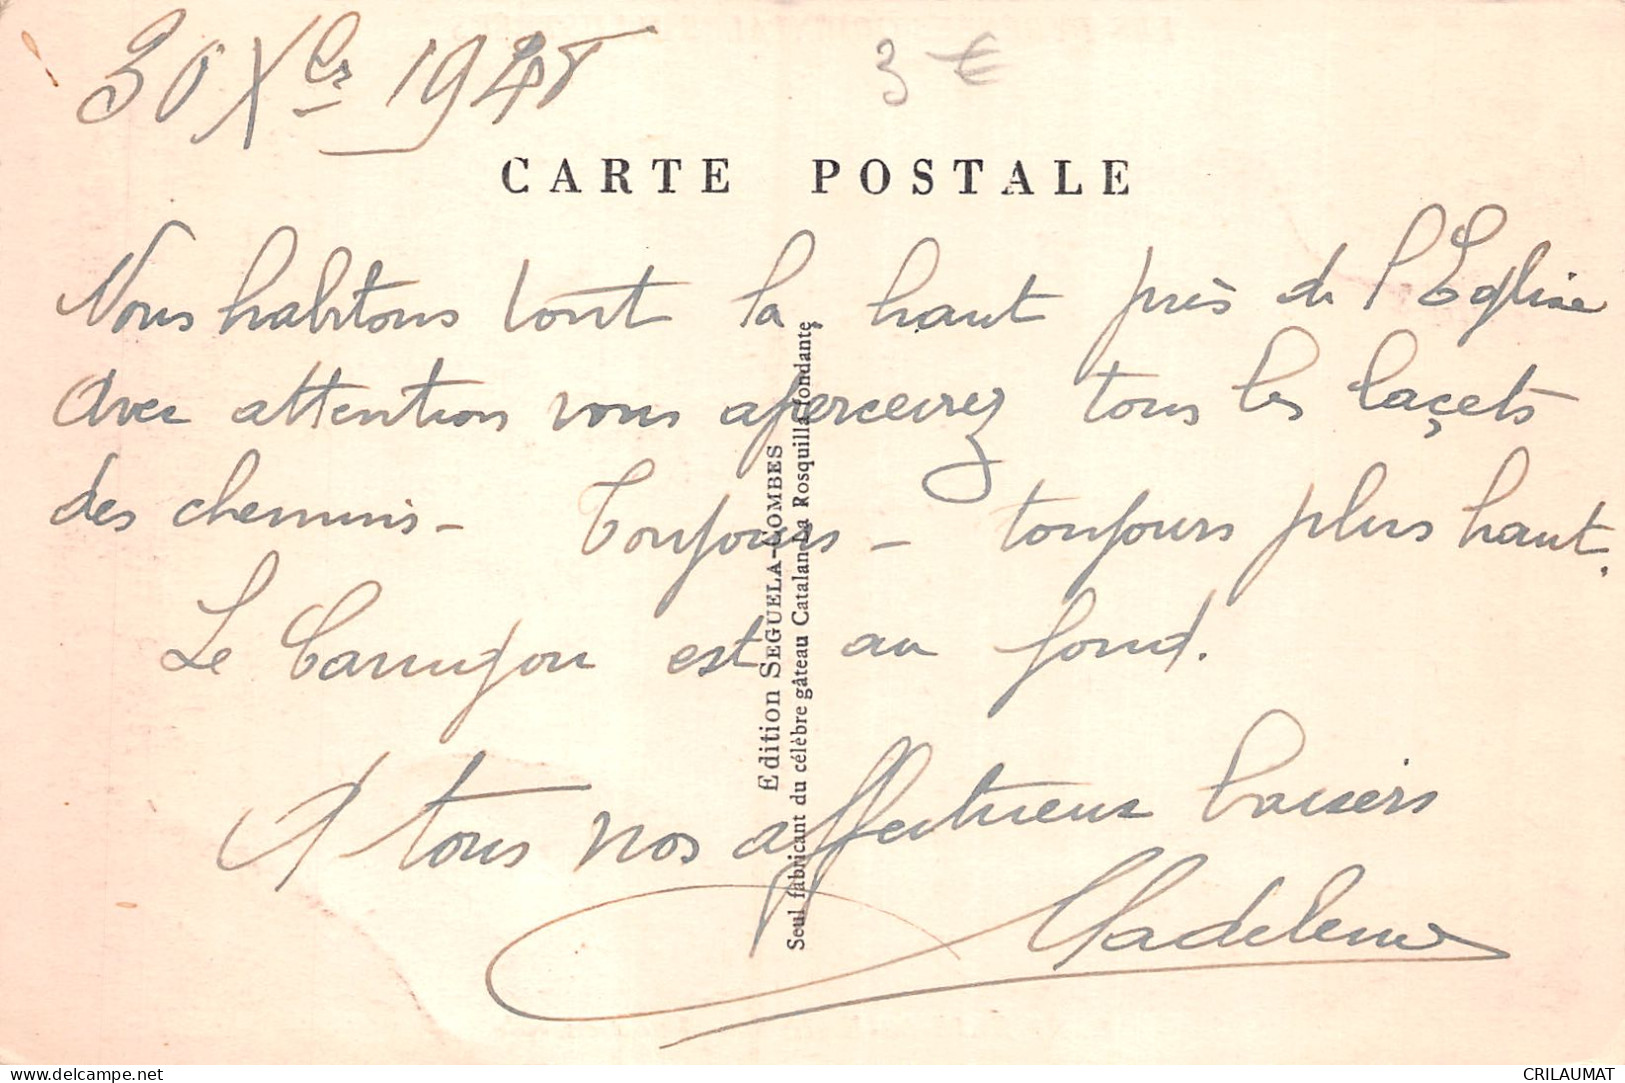 30 Xbre 19
3 €
CARTE POSTALE
Nous habitons tout la haut près de l'Eglise
Avec attention vous apercevrez tous les laçets
des chemins - Toujours - toujours plus haut.
Le Canigou est au fond.
A tous nos affectueux baisers
Madeleine
Edition SEGUELA-COMBES
Seul fabricant du célèbre gâteau Catalan La Rosquilla fondante
www.delcampe.net
CRILAUMAT